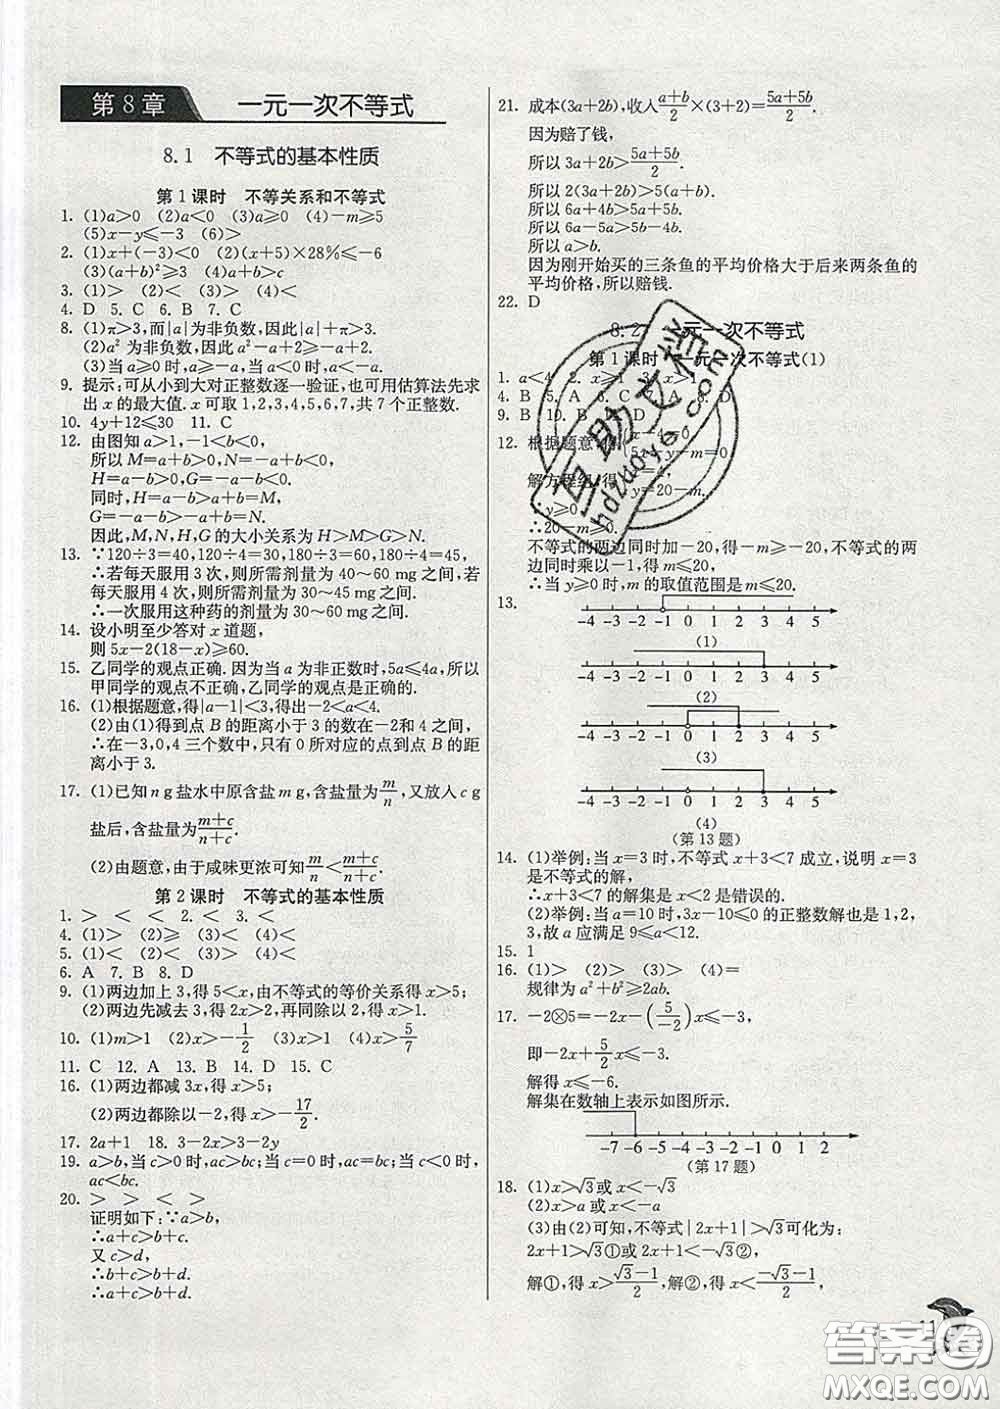 第8章 一元一次不等式
8.1 不等式的基本性质
第1课时 不等关系和不等式
1. (1)a>0 (2)a<0 (3)a⩾0 (4)-m⩾5
(5)x-y⩽-3 (6)>
2. (1)x+(-3)<0 (2)(x+5)×28%⩽-6
(3)(a+b)²⩾3 (4)b+a>c
3. (1)> (2)< (3)< (4)<
4. D 5. C 6. B 7. C
8. (1)π>3,而|a|为非负数,因此|a|+π>3.
(2)a²为非负数,因此a²-a+2⩾-a+2.
(3)当a⩾0时,a⩾-a,当a<0时,a<-a.
9. 提示:可从小到大对正整数逐一验证,也可用估算法先求
出x的最大值.x可取1,2,3,4,5,6,7,共7个正整数.
10. 4y+12⩽30 11. C
12. 由图知a>1,-1<b<0,
所以M=a+b>0,N=-a+b<0,
H=a-b>0,G=-a-b<0.
同时,H=a-b>a+b=M,
G=-a-b>-a+b=N.
因此,M,N,H,G的大小关系为H>M>G>N.
13. ∵120÷3=40,120÷4=30,180÷3=60,180÷4=45,
∴若每天服用3次,则所需剂量为40~60 mg之间,若
每天服用4次,则所需剂量为30~45 mg之间.
∴一次服用这种药的剂量为30~60 mg之间.
14. 设小明至少答对x道题,
则5x-2(18-x)⩾60.
15. 乙同学的观点正确.因为当a为非正数时,5a⩽4a,所以
甲同学的观点不正确,乙同学的观点是正确的.
16. (1)根据题意,得|a-1|<3,得出-2<a<4.
(2)由(1)得到点B的距离小于3的数在-2和4之间,
∴在-3,0,4三个数中,只有0所对应的点到点B的距
离小于3.
17. (1)已知n g盐水中原含盐m g,含盐量为m/n,又放入c g
盐后,含盐量为(m+c)/(n+c).
(2)由题意,由于咸味更浓可知m/n<(m+c)/(n+c).
第2课时 不等式的基本性质
1. > < < 2. < 3. <
4. (1)> (2)⩾ (3)< (4)<
5. (1)> (2)< (3)< (4)<
6. A 7. B 8. D
9. (1)两边加上3,得5<x,由不等式的等价关系得x>5;
(2)两边先减去3,得2x>2,再同除以2,得x>1.
10. (1)m>1 (2)x>-1/2 (3)x>-1 (4)x>5/7
11. C 12. A 13. B 14. D 15. C
16. (1)两边都减3x,得x>5;
(2)两边都除以-2,得x>-17/2.
17. 2a+1 18. 3-2x>3-2y
19. a>b,当c>0时,ac>bc;当c=0时,ac=bc;当c<0时,
ac<bc.
20. > > < >
证明如下:∵a>b,
∴a+c>b+c.
又c>d,
∴b+c>b+d.
∴a+c>b+d.
21. 成本(3a+2b),收入(a+b)/2×(3+2)=(5a+5b)/2.
因为赔了钱,
所以3a+2b>(5a+5b)/2.
所以2(3a+2b)>5(a+b).
所以6a+4b>5a+5b.
所以6a-5a>5b-4b.
所以a>b.
因为刚开始买的三条鱼的平均价格大于后来两条鱼的
平均价格,所以赔钱.
22. D
8.2 一元一次不等式
第1课时 一元一次不等式(1)
1. a<4 2. x⩾1 3. x>1
4. B 5. A 8. D
9. B 10. D
12. 根据题意 x-4=0
5x-y-m=0
解方程组 y=20-m.
∵y⩾0,
∴20-m⩾0.
不等式的两边同时加-20,得-m⩾-20,不等式的两
边同时乘以-1,得m⩽20.
∴当y⩾0时,m的取值范围是m⩽20.
13.
-4 -3 -2 -1 0 1 2 3 4 5
(1)
-4 -3 -2 -1 0 1 2 3 4 5
(2)
-4 -3 -2 -1 0 1 2 3 4 5
(3)
-4 -3 -2 -1 0 1 2 3 4 5
(4)
(第13题)
14. (1)举例:当x=3时,不等式x+3<7成立,说明x=3
是不等式的解,
∴x+3<7的解集是x<2是错误的.
(2)举例:当a=10时,3x-10⩽0的正整数解也是1,2,
3,故a应满足9⩽a<12.
15. 1
16. (1)> (2)> (3)> (4)=
规律为a²+b²⩾2ab.
17. -2⊗5=-2x-(5/-2)x⩽-3,
即-2x+5/2x⩽-3.
解得x⩽-6.
解集在数轴上表示如图所示.
-7 -6 -5 -4 -3 -2 -1 0 1 2
(第17题)
18. (1)x>√3或x<-√3
(2)x>a或x<-a
(3)由(2)可知,不等式|2x+1|>√3可化为:
2x+1>√3①或2x+1<-√3②,
解①,得x>(√3-1)/2,解②,得x<(-√3-1)/2,
互助文档
hdzuoye.com
答案圈
MXQE.COM